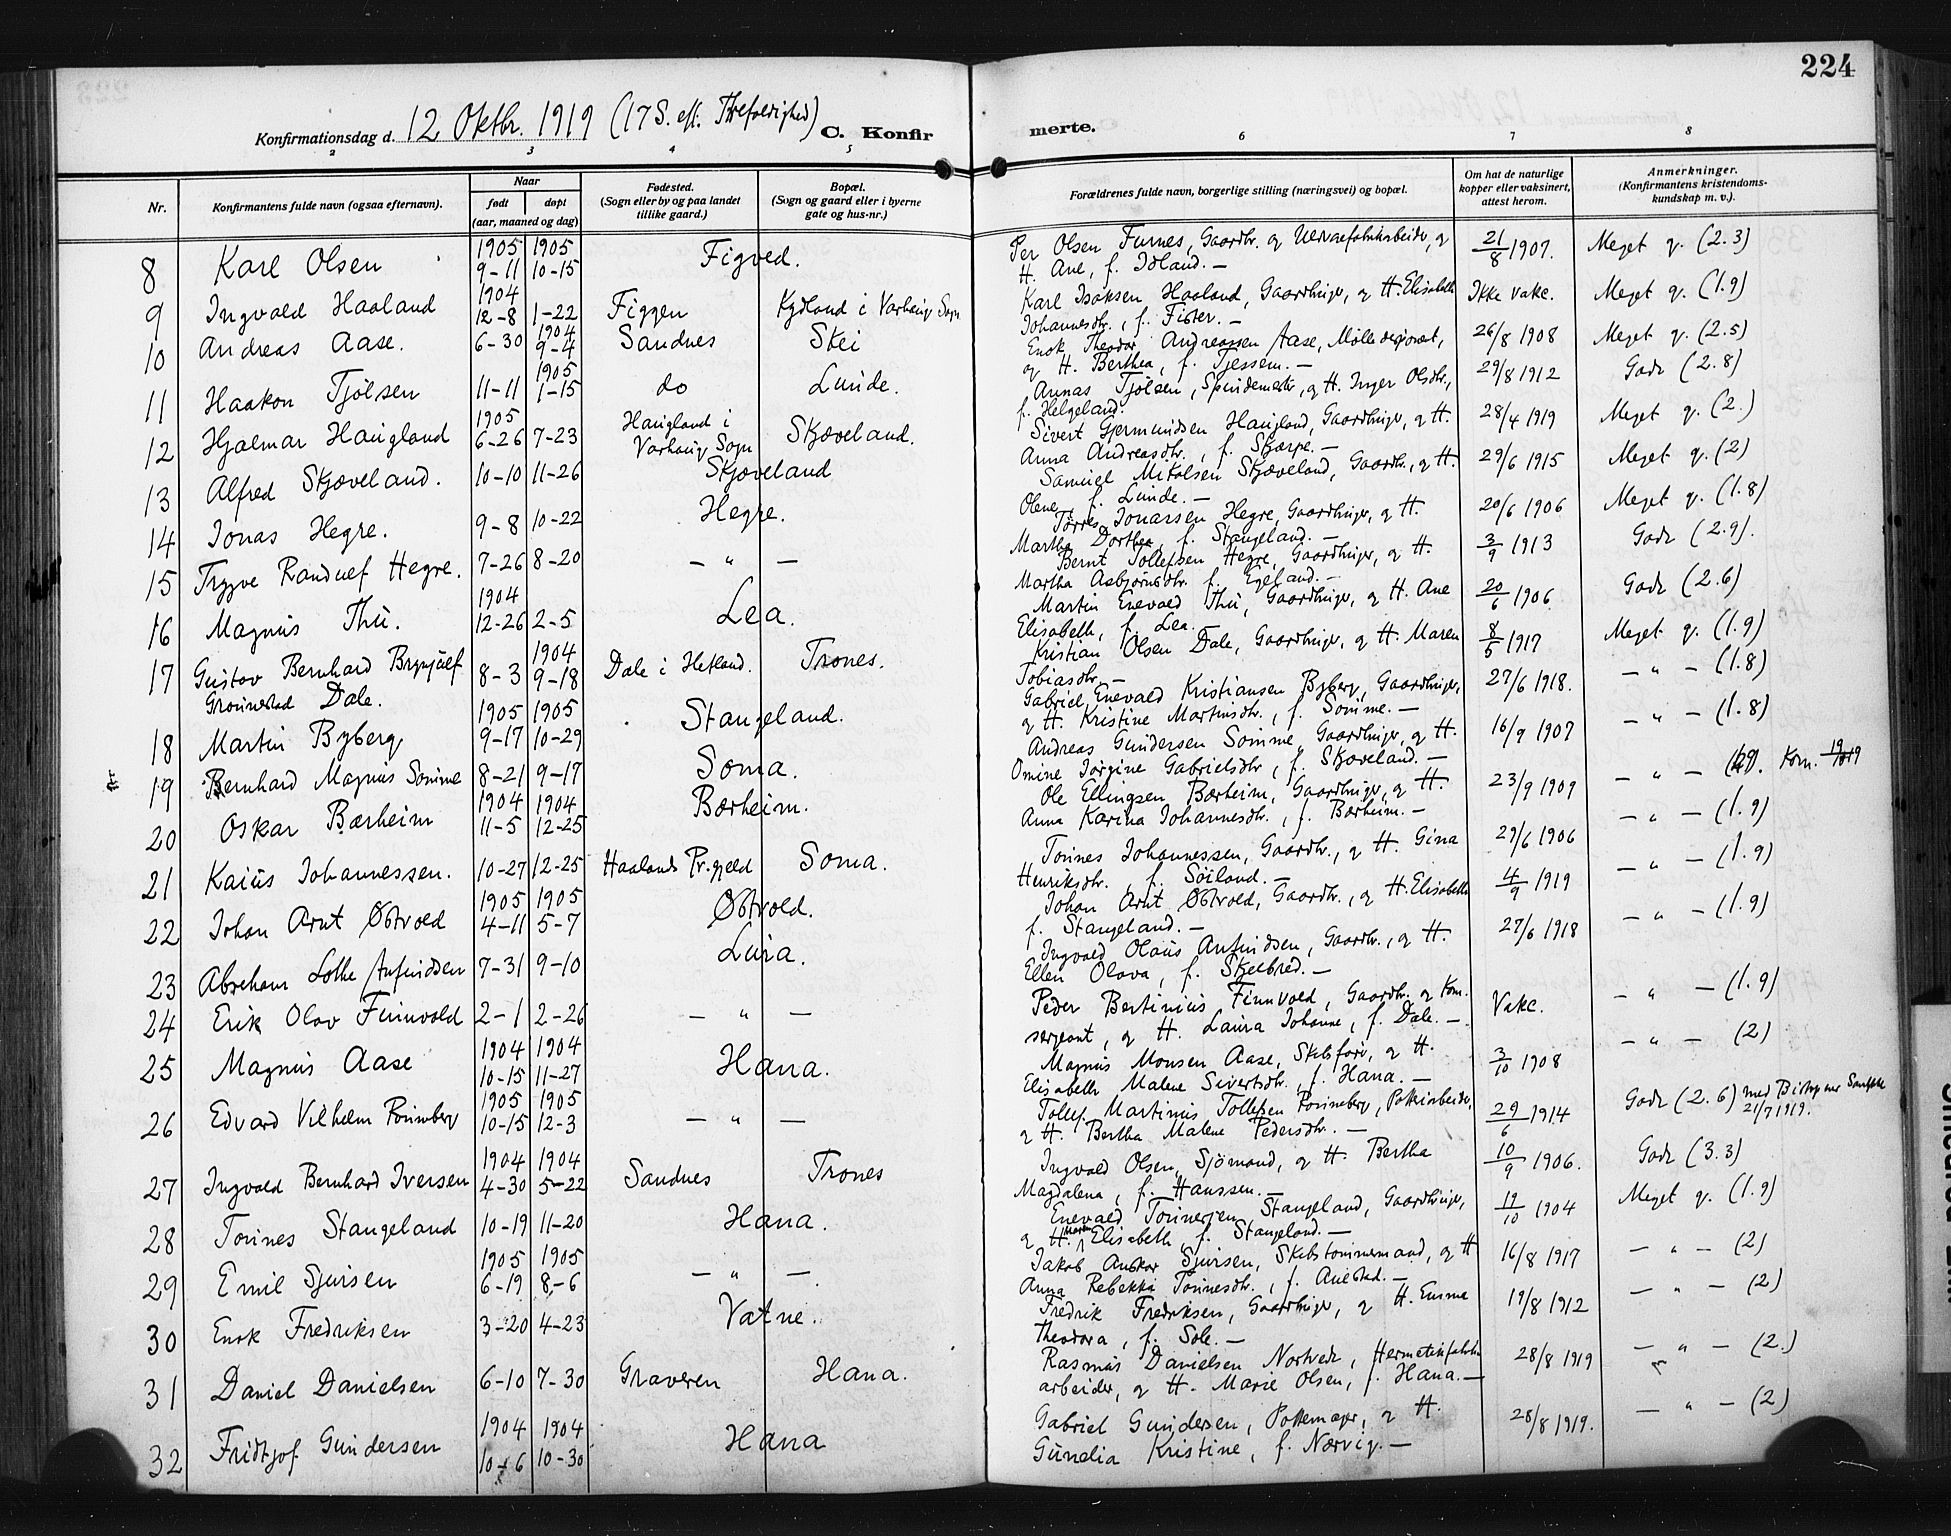 224
Konfirmationsdag d. 12. Oktbr. 1919 (17 S. eft. Trefoldighed) C. Konfirmerte.
2 3 4 5 6 7 8
Nr.
Konfirmantens fulde navn (ogsaa efternavn).
Naar
født døpt
(aar, maaned og dag)
Fødested.
(Sogn eller by og paa landet
tillike gaard.)
Bopæl.
(Sogn og gaard eller i byerne
gate og hus-nr.)
Forældrenes fulde navn, borgerlige stilling (næringsvei) og bopæl.
Om hat de naturlige
kopper eller vaksinert,
attest herom.
Anmerkninger.
(Konfirmantens kristendoms-
kundskap m. v.).
8 Karl Olsen 1905 9-11 1905 10-15 Figved. Per Olsen Furnes, Gaardbr. og Uldvarefabrikarbeider, og
H. Ane, f. Idland. — 21/8 1907. Meget g. (2.3)
9 Ingvald Haaland 1904 12-8 1-22 Figgen Kydland i Varhaug Sogn Karl Isaksen Haaland, Gaardbruger, og H. Elisabeth
Johannesdtr., f. Fister. — Ikke vakc. Meget g. (1.9)
10 Andreas Aase. 6-30 1904 9-4 Sandnes Skei Enok Theodor Andreassen Aase, Mölledesponent,
og H. Berthea, f. Tjessem. — 26/8 1908 Meget g. (2.5)
11 Haakon Tjölsen 11-11 1905 1-15 do Lunde. Annas Tjölsen, Spindemestr., og H. Inger Olsdtr.,
f. Helgeland. 29/8 1912 Godt (2.8)
12 Hjalmar Haugland 1905 6-26 7-23 Haugland i
Varhaug Sogn Skjæveland. Sivert Gjermundsen Haugland, Gaardbruger, og H.
Anna Andreasdtr., f. Skarpe. — 28/4 1919 Meget g. (2.)
13 Alfred Skjæveland. 10-10 11-26 Skjæveland Samuel Mikalsen Skjæveland, Gaardbr., og H.
Olene, f. Lunde. — 29/6 1915 Meget g. (2)
14 Jonas Hegre. 9-8 10-22 Hegre. Törres Jonassen Hegre, Gaardbruger, og H.
Martha Dorthea, f. Stangeland. — 20/6 1906 Meget g. (1.8)
15 Trygve Randulf Hegre. 7-26 8-20 — " — Bernt Tollefsen Hegre, Gaardbruger, og H.
Martha Asbjørnsdtr. f. Egeland. — 3/9 1913 Godt (2.9).
16 Magnus Thu. 1904 12-26 2-5 Lea. Martin Enevald Thu, Gaardbruger, og H. Ane
Elisabeth, f. Lea. — 20/6 1906 Godt (2.6)
17 Gustav Bernhard Brynjulf
Grønnestad Dale. 8-3 1904 9-18 Dale i Hetland. Trones. Kristian Olsen Dale, Gaardbruger, og H. Maren
Tobiasdtr. — 8/5 1917 Meget g. (1.9)
18 Martin Byberg 1905 9-17 1905 10-29 Stangeland. Gabriel Enevald Kristiansen Byberg, Gaardbruger,
og H. Kristine Martinsdtr., f. Sömme. — 27/6 1918. — " — (1.8)
19 Bernhard Magnus Sömme 8-21 9-17 Soma. Andreas Gundersen Sömme, Gaardbruger, og H.
Omine Jorgine Gabrielsdtr., f. Skjæveland. — 16/9 1907 — " — (1.8)
20 Oskar Bærheim 1904 11-5 1904 12-25 Bærheim. Ole Ellingsen Bærheim, Gaardbruger, og H.
Anna Karina Johannesdtr., f. Bærheim. — 23/9 1909 — " —
21 Kaius Johannessen. 10-27 12-25 Haalands Pr.gjeld Soma. Tönnes Johannessen, Gaardbr., og H. Gina
Henriksdtr., f. Söiland. — 29/6 1906 — " — (1.9)
22 Johan Arnt Østvold 1905 4-11 1905 5-7 Østvold. Johan Arnt Østvold, Gaardbr., og H. Elisabeth
f. Stangeland. — 4/9 1919 — " — (1.9)
23 Abraham Lothe Anfindsen 7-31 9-10 Lura. Ingvald Olaus Anfindsen, Gaardbr., og H.
Ellen Olava, f. Skjelbred. — 27/6 1918 — " — (1.9)
24 Erik Olav Finnvold 2-1 2-26 — " — Peder Bertinius Finnvold, Gaardbr. og Kom.
sergeant, og H. Laura Johanne, f. Dale. — Vakc. — " — (1.9)
25 Magnus Aase 1904 10-15 1904 11-27 Hana. Magnus Monsen Aase, Skibsförer, og H.
Elisabeth Malene Sivertsdtr., f. Hana. — 3/10 1908 — " — (2)
26 Edvard Vilhelm Rönneberg 1905 10-15 1905 12-3 — " — Tollef Martinus Tollefsen Rönneberg, Potteriarbeider,
og H. Bertha Malene Pedersdtr. — 29/6 1914 Godt (2.6) med Bispens Samtykke
21/7 1919.
27 Ingvald Bernhard Iversen 1904 4-30 1904 5-22 Sandnes Trones Ingvald Olsen, Sjömand, og H. Bertha
Magdalena, f. Hanssen. — 10/9 1906. Godt (3.3)
28 Tönnes Stangeland 10-19 11-20 Hana. Enevald Tönnesen Stangeland, Gaardbruger,
og H. Elisabeth, f. Stangeland. — 19/10 1904 Meget g. (1.9)
29 Emil Sjursen 1905 6-19 1905 8-6 — " —. Jakob Anskar Sjursen, Skibstömmermand, og H
Anna Rebekka Tönnesdtr., f. Auestad. — 16/8 1917 — " — (2)
30 Enok Fredriksen 3-20 4-23 Vatne. Fredrik Fredriksen, Gaardbruger, og H. Emma
Theodora, f. Sole. — 19/8 1912 — " — (2)
31 Daniel Danielsen 6-10 7-30 Graveren Hana. Rasmus Danielsen Nortvedt, Hermetikfabrik-
arbeider, og H. Marie Olsen, f. Hana. — 28/8 1919 — " — (2.)
32 Fridtjof Gundersen 1904 10-6 1904 10-30 Hana Gabriel Gundersen, Pottemager, og H.
Gunelia Kristine, f. Nærvig. — 28/8 1919. — " — (2)